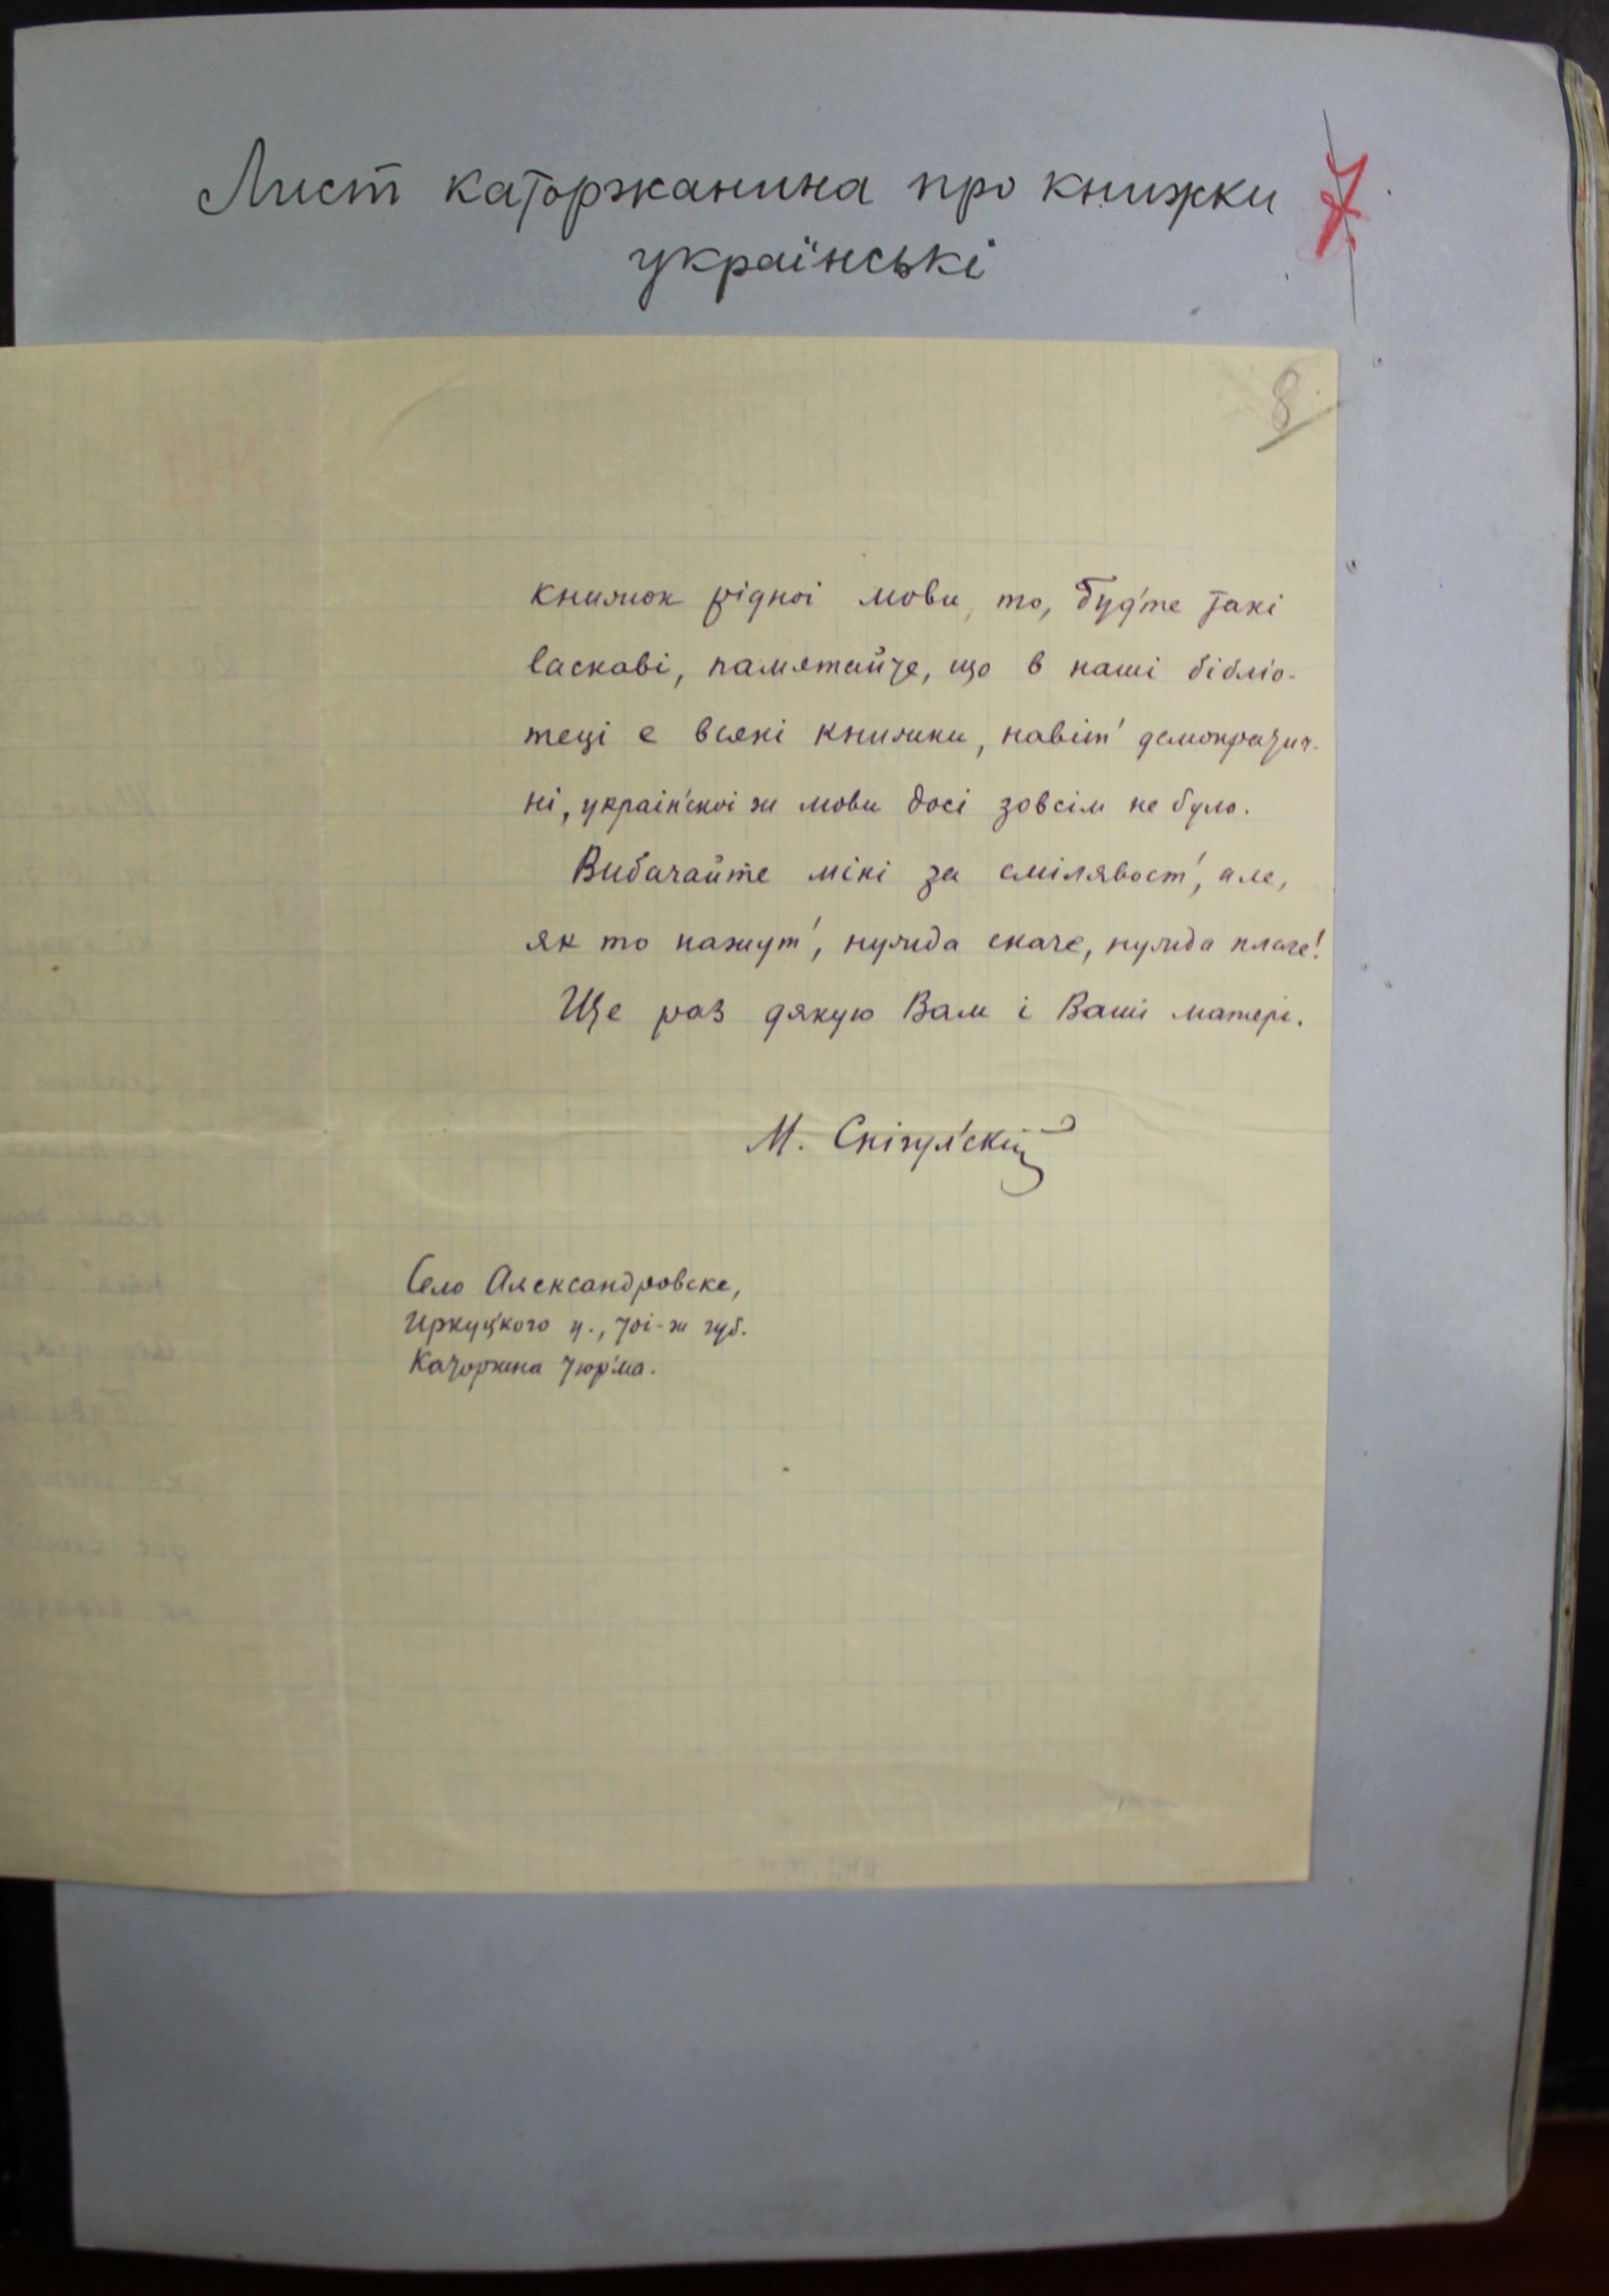 Лист каторжанина про книжки
українські
7
8
книжок рідноі мови, то, буд'те такі
ласкаві, памятайте, що в наші бібліо-
теці е всякі книжки, навіт' демократич-
ні, украін'скоі ж мови досі зовсім не було.
Вибачайте міні за смілявост', але,
як то кажут', нужда скаче, нужда плаче!
Ще раз дякую Вам і Ваші матері.
М.
Село Александровске,
Иркуц'кого у., тоі-ж губ.
Каторжна тюр'ма.